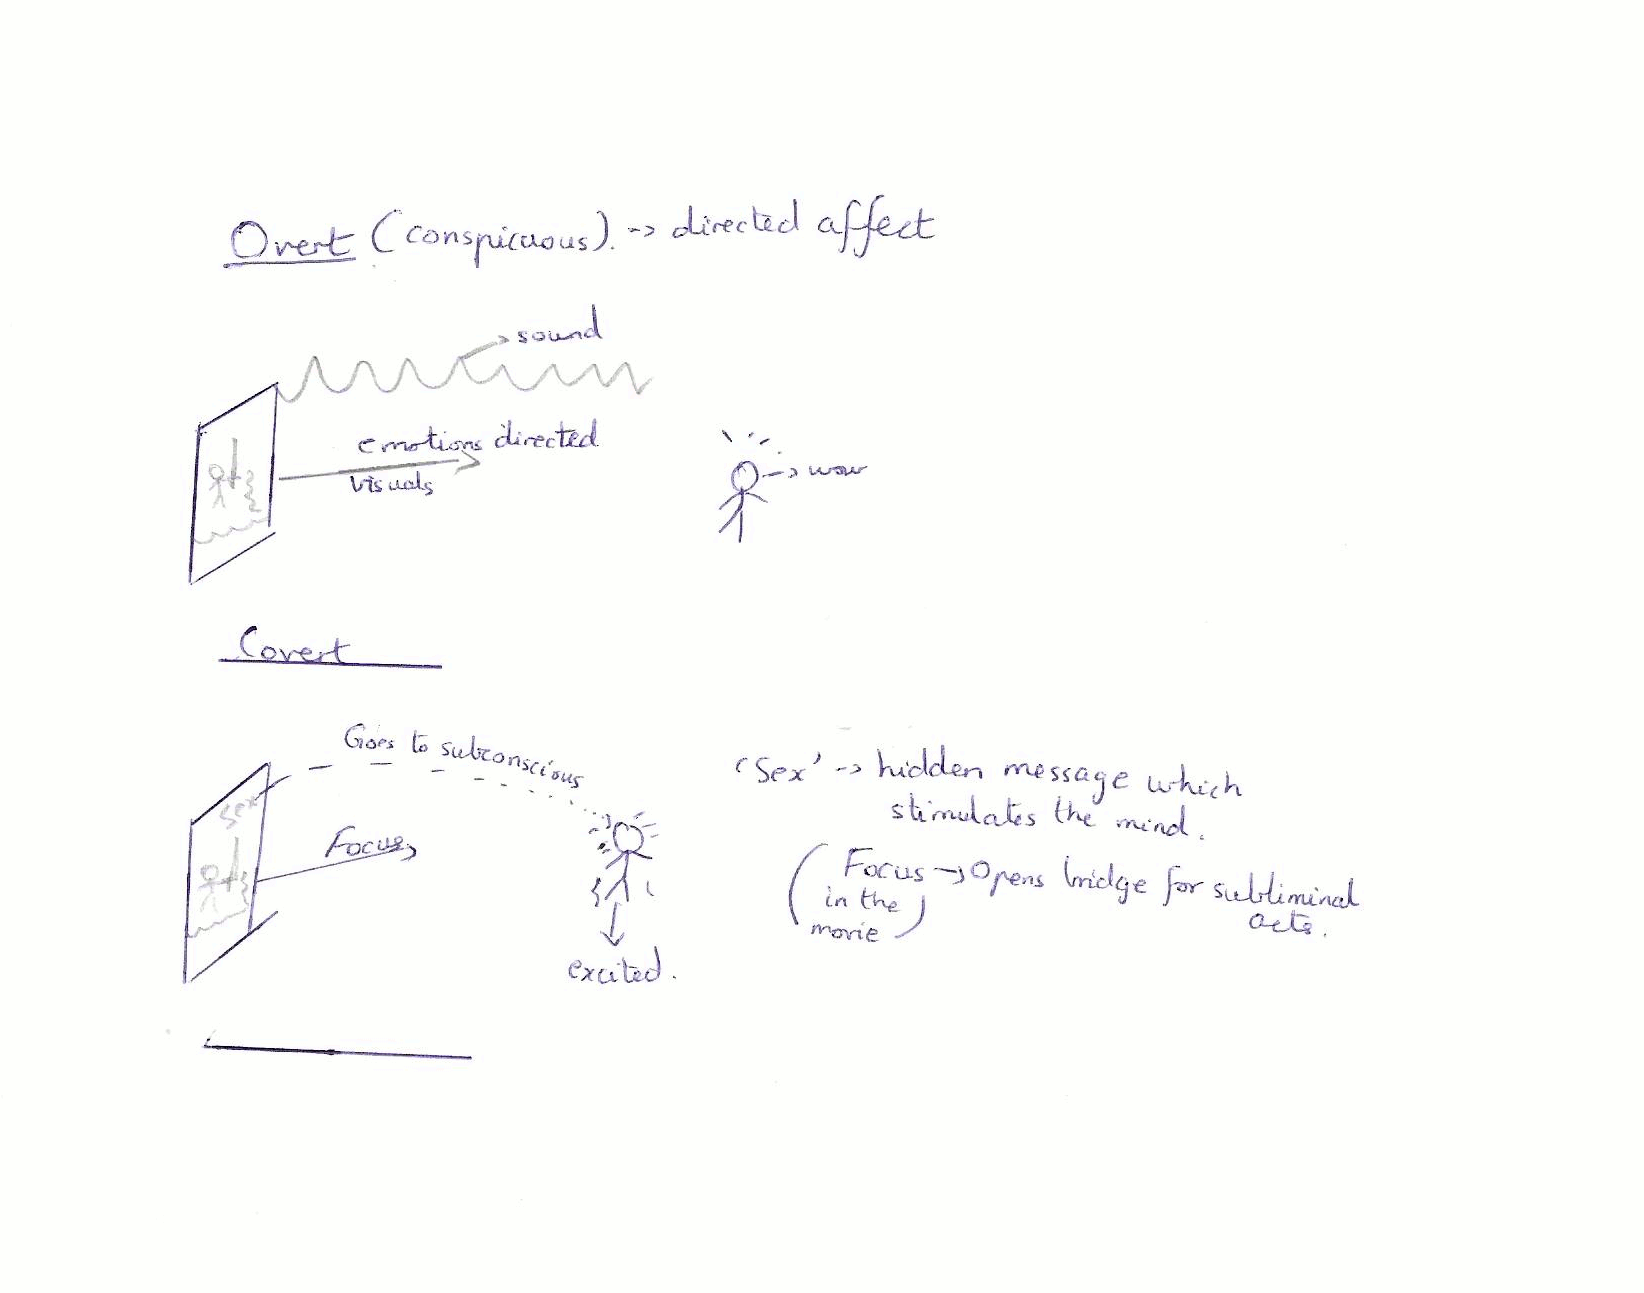 Overt (conspicuous). -> directed affect
sound
emotions directed
visuals
-> wow
Covert
Goes to subconscious
Sex
Focus
excited.
'Sex' -> hidden message which
stimulates the mind.
(Focus -> Opens bridge for subliminal
in the
acts.
movie)